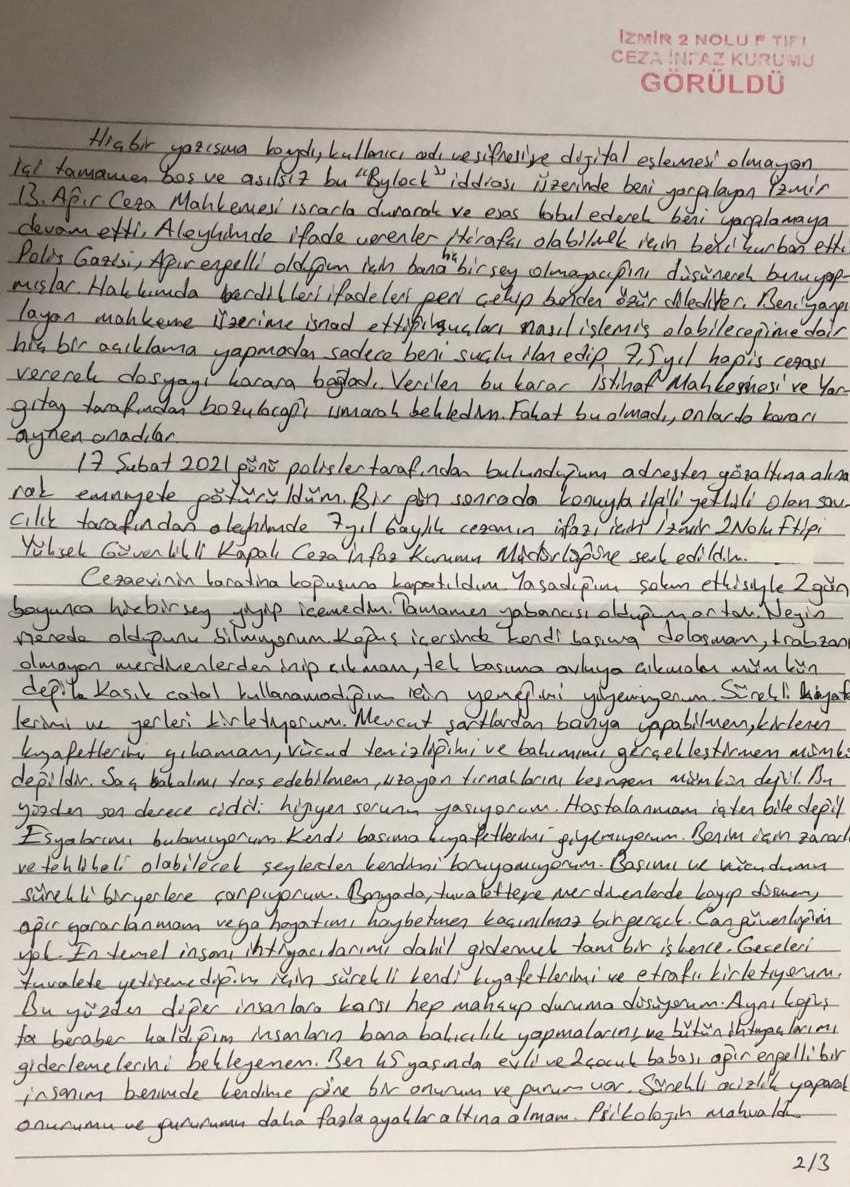 İZMİR 2 NOLU F TİPİ
CEZA İNFAZ KURUMU
GÖRÜLDÜ
Hiçbir yazışma kaydı, kullanıcı adı ve şifresi ve digital eşlemesi olmayan
içi tamamen boş ve asılsız bu "Bylock" iddiası üzerinde beni yargılayan İzmir
13. Ağır Ceza Mahkemesi ısrarla durarak ve esas kabul ederek beni yargılamaya
devam etti. Aleyhimde ifade verenler itirafçı olabilmek için beni kurban etti.
Polis Gazisi, Ağır engelli olduğum için bana hiç bir şey olmayacağını düşünerek bunu yap-
mışlar. Hakkımda verdikleri ifadeleri geri çekip benden özür dilediler. Beni yargı
layan mahkeme üzerime isnad ettiği suçları nasıl işlemiş olabileceğime dair
hiç bir açıklama yapmadan sadece beni suçlu ilan edip 7,5 yıl hapis cezası
vererek dosyayı karara bağladı. Verilen bu karar İstinaf Mahkemesi ve Yar-
gıtay tarafından bozulacağı umarak bekledim. Fakat bu olmadı, onlarda kararı
aynen onadılar.
17 Şubat 2021 günü polisler tarafından bulunduğum adresten gözaltına alına
rak emniyete götürüldüm. Bir gün sonrada konuyla ilgili yetkili olan sav-
cılık tarafından aleyhimde 7 yıl 6 aylık cezamın infazı için İzmir 2 Nolu F tipi
Yüksek Güvenlikli Kapalı Ceza İnfaz Kurumu Müdürlüğüne sevk edildim.
Cezaevinin karantina koğuşuna kapatıldım. Yaşadığım şokun etkisiyle 2 gün
boyunca hiçbir şey yiyip içemedim. Tamamen yabancısı olduğum ortam. Neyin
nerede olduğunu bilmiyorum. Koğuş içersinde kendi başıma dolaşmam, trabzanı
olmayan merdivenlerden inip çıkmam, tek başıma avluya çıkmam mümkün
değil. Kaşık çatal kullanamadığım için yemeğimi yiyemiyorum. Sürekli kıyafet
lerimi ve yerleri kirletiyorum. Mevcut şartlardan banyo yapabilmem, kirlenen
kıyafetlerimi yıkamam, vücud temizliğimi ve bakımımı gerçekleştirmem mümkün
değildir. Saç sakalımı traş edebilmem, uzayan tırnaklarımı kesmem mümkün değil. Bu
yüzden son derece ciddi hijyen sorunu yaşıyorum. Hastalanmam işten bile değil
Eşyalarımı bulamıyorum. Kendi başıma kıyafetlerimi giyemiyorum. Benim için zararlı
ve tehlikeli olabilecek şeylerden kendimi koruyamıyorum. Başımı ve vücudumu
sürekli bir yerlere çarpıyorum. Banyoda, tuvalette ve merdivenlerde kayıp düşmem,
ağır yaralanmam veya hayatımı kaybetmem kaçınılmaz bir gerçek. Can güvenliğim
yok. En temel insani ihtiyaçlarımı dahil gidermek tam bir işkence. Geceleri
tuvalete yetişemediğim için sürekli kendi kıyafetlerimi ve etrafı kirletiyorum.
Bu yüzden diğer insanlara karşı hep mahçup duruma düşüyorum. Aynı koğuş
ta beraber kaldığım insanların bana bakıcılık yapmalarını, ve bütün ihtiyaçlarımı
gidermelerini bekleyemem. Ben 45 yaşında evli ve 2 çocuk babası ağır engelli bir
insanım benimde kendime göre bir onurum ve gururum var. Sürekli acizlik yaparak
onurumu ve gururumu daha fazla ayaklar altına almam. Psikolojim mahvoldu.
2/3